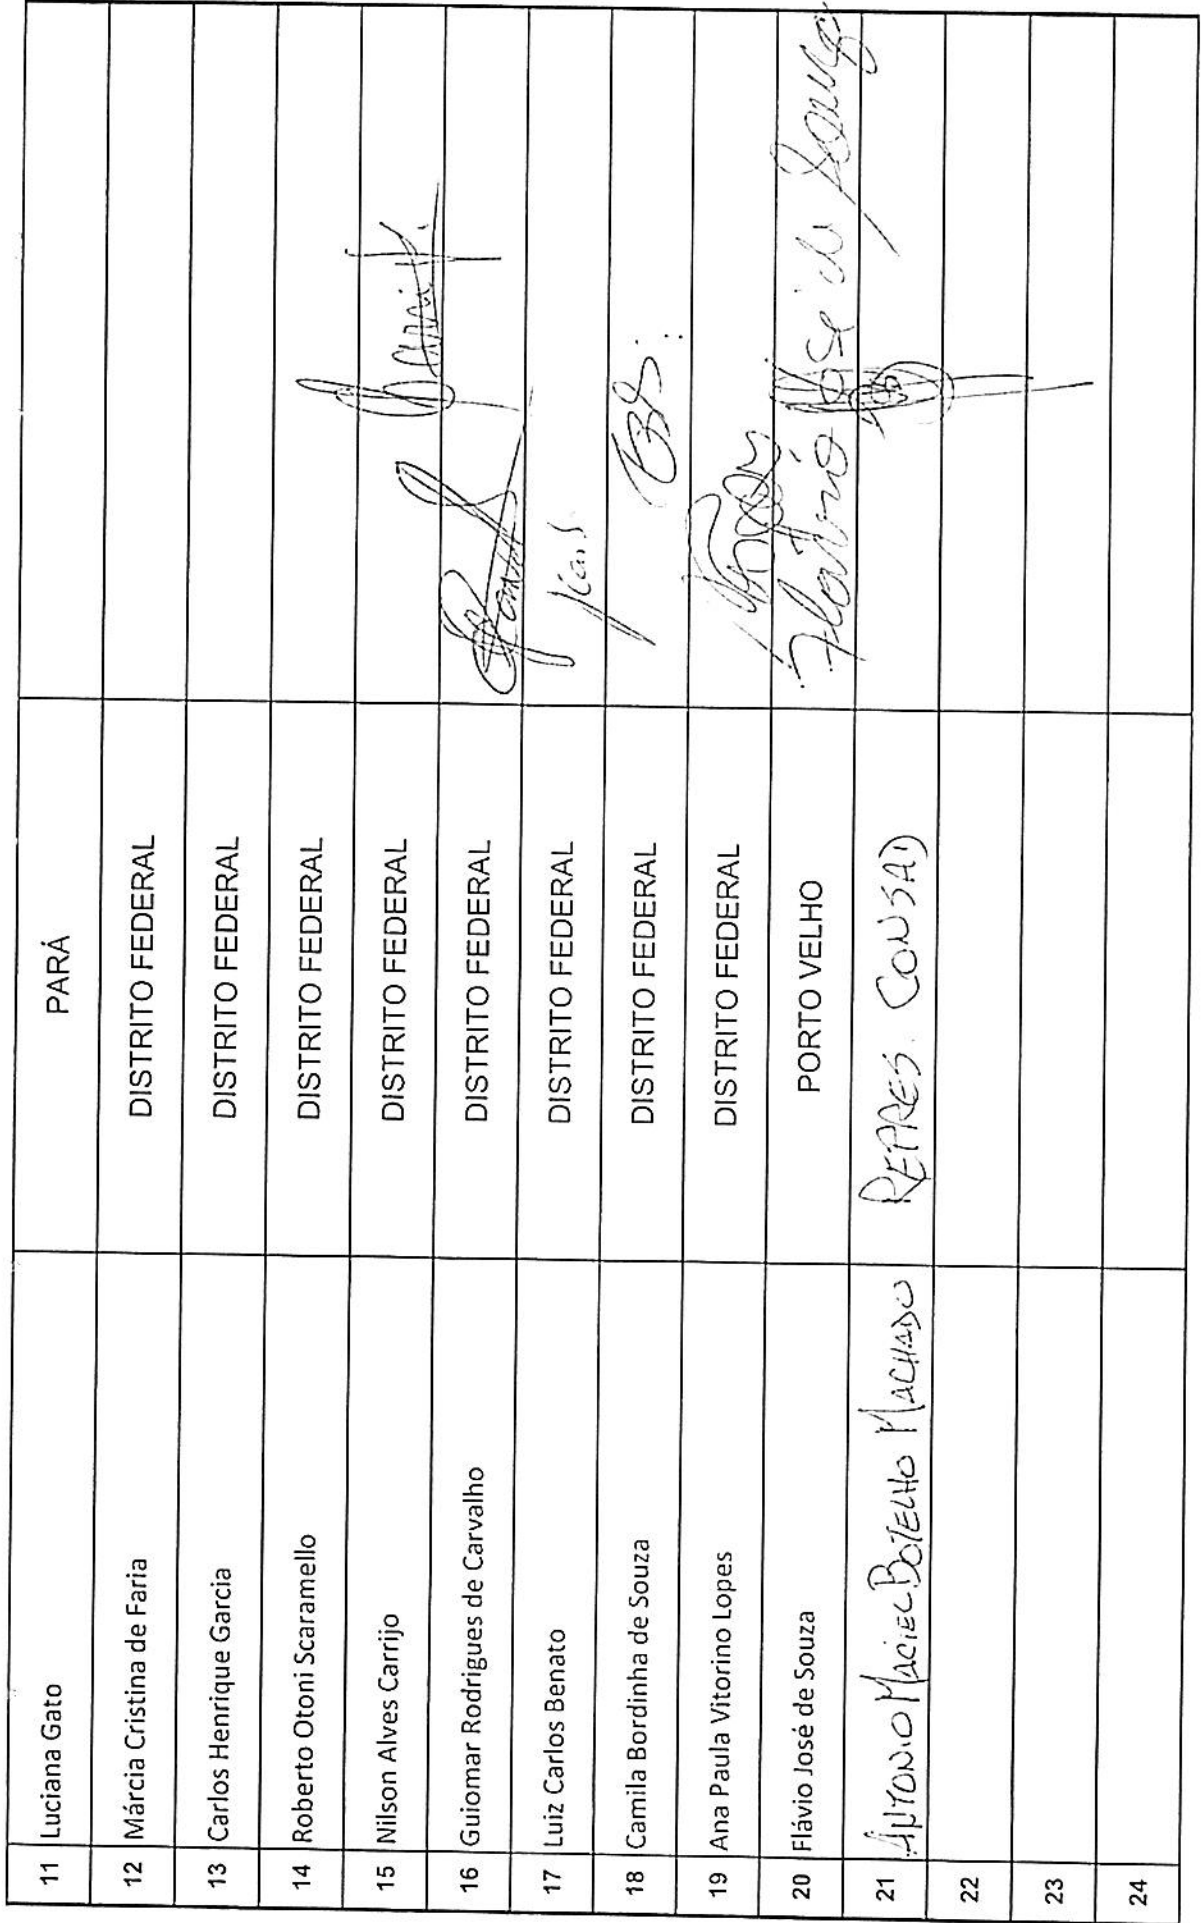 11 Luciana Gato PARÁ
12 Márcia Cristina de Faria DISTRITO FEDERAL
13 Carlos Henrique Garcia DISTRITO FEDERAL
14 Roberto Otoni Scaramello DISTRITO FEDERAL
15 Nilson Alves Carrijo DISTRITO FEDERAL
16 Guiomar Rodrigues de Carvalho DISTRITO FEDERAL
17 Luiz Carlos Benato DISTRITO FEDERAL
18 Camila Bordinha de Souza DISTRITO FEDERAL
19 Ana Paula Vitorino Lopes DISTRITO FEDERAL
20 Flávio José de Souza PORTO VELHO Flávio José de Souza
21 ANTONIO MACIEL BOTELHO MACHADO REPRES. CONSAD
22
23
24